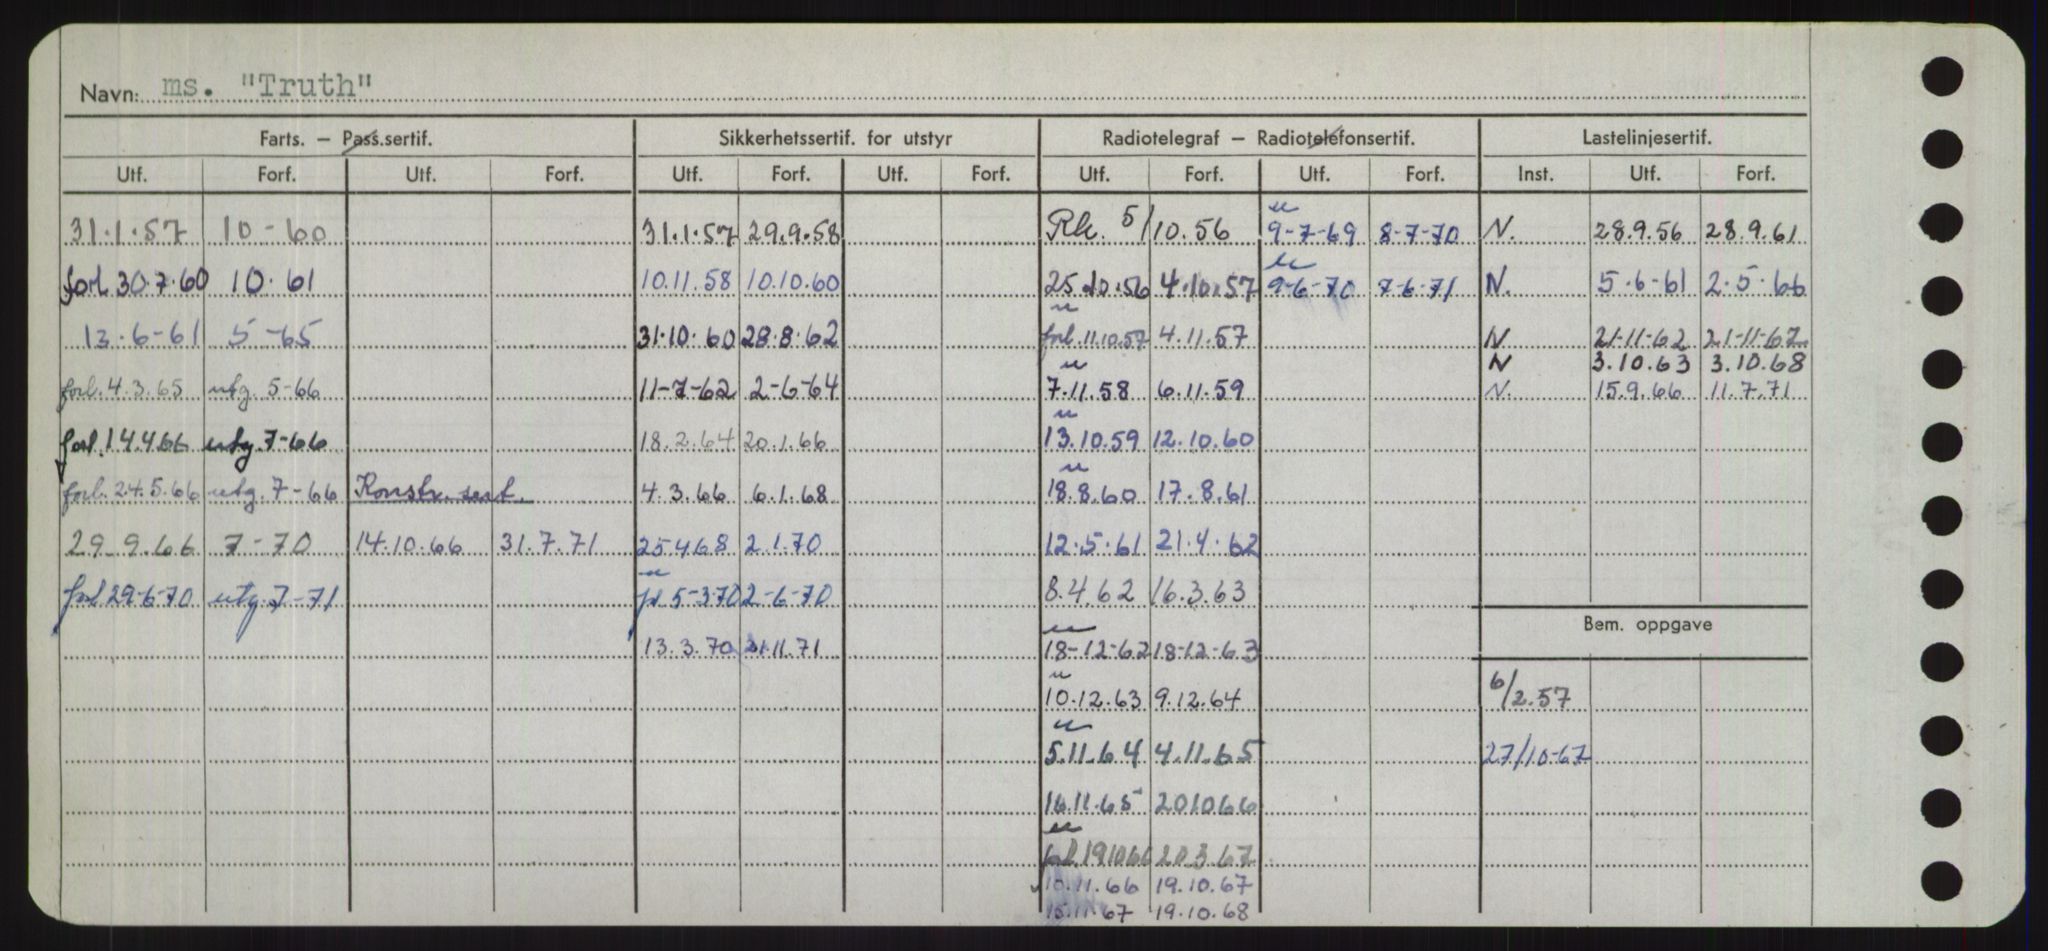 Navn: ms. "Truth"
Farts. — Pass.sertif. Sikkerhetssertif. for utstyr Radiotelegraf — Radiotelefonsertif. Lastelinjesertif.
Utf. Forf. Utf. Forf. Utf. Forf. Utf. Forf. Utf. Forf. Utf. Forf. Inst. Utf. Forf.
31.1.57 10-60 31.1.57 29.9.58 Rk. 5/10.56 u 9-7-69 8-7-70 N. 28.9.56 28.9.61
forl 30.7.60 10.61 10.11.58 10.10.60 25.10.56 4.10.57 u 9-6-70 7-6-71 N. 5.6-61 2.5.66
13.6-61 5-65 31.10.60 28.8.62 u forl. 11.10.57 4.11.57 N 21-11-62 21-11-67
N 3.10.63 3.10.68
forl. 4.3.65 utg. 5-66 11-7-62 2-6-64 u 7.11.58 6.11.59 N. 15.9.66 11.7.71
forl. 14.4.66 utg. 7-66 18.2.64 20.1.66 u 13.10.59 12.10.60
forl. 24.5.66 utg. 7-66 Konstr. sert. 4.3.66 6.1.68 u 18.8.60 17.8.61
29.9.66 7-70 14.10.66 31.7.71 25.4.68 2.1.70 12.5.61 21.4.62
forl 29-6-70 utg. 7-71 u fl 5-3-70 2-6-70 8.4.62 16.3.63
Bem. oppgave
13.3.70 21.11.71 u 18-12-62 18-12-63
u 10.12.63 9.12.64 6/2.57
u 5.11.64 4.11.65 27/10-67
16.11.65 20.10.66
u forl. 19.10.66 20.3.67
10.11.66 19.10.67
15.11.67 19.10.68